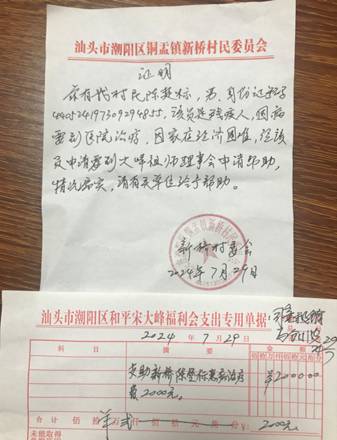 汕头市潮阳区铜盂镇新桥村民委员会
证明
兹有我村民陈楚标，男，身份证号码
440524197309294855，该员是残疾人，因病
需到医院治疗，因家庭经济困难，经该
员申请要到大峰祖师理事会申请帮助，
情况属实，请有关单位给予帮助。
新桥村委会
2024年7月29日
汕头市潮阳区和平宋大峰福利会支出专用单据
2024 7 29
科目 摘要 金额
支助新桥陈楚标患病治疗
费2000元。
¥2000.00
合计 佰 拾 万 仟 佰 拾 元
2000元
未能取得